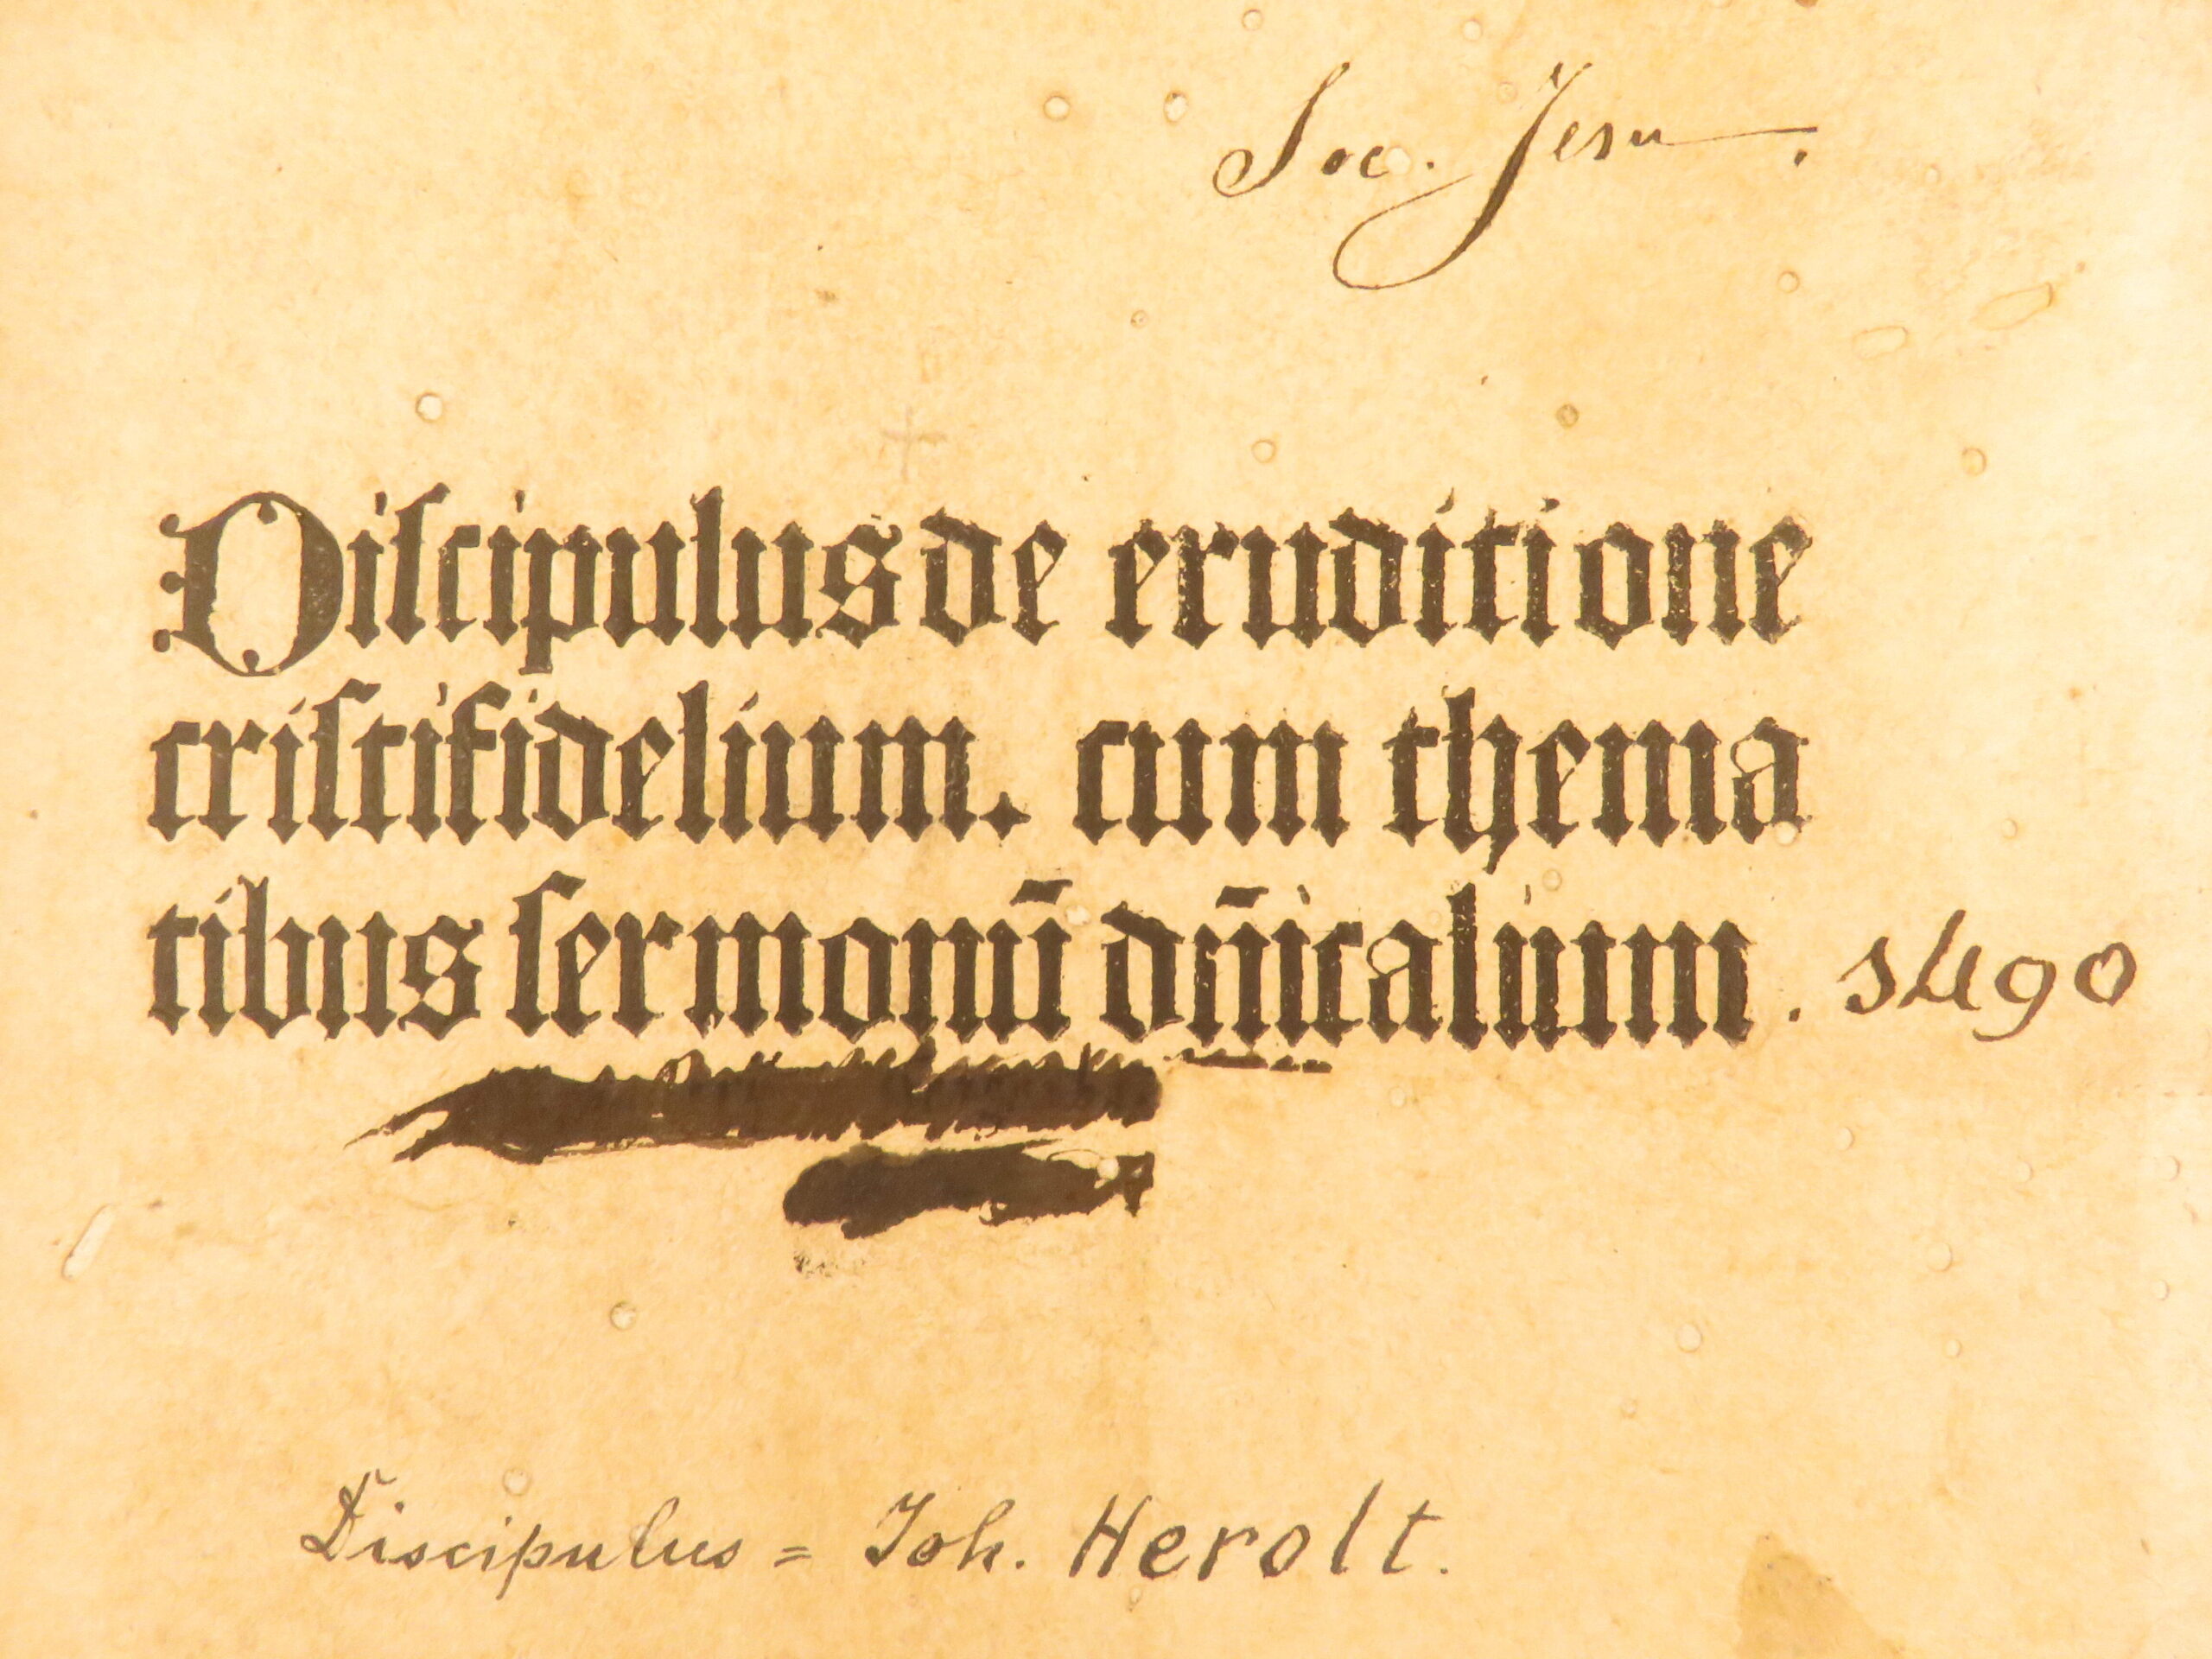 Soc. Jesu.
Diſcipulus de eruditione
criſtifidelium. cum thema
tibus ſermonū dn̄icalium. 1490
Discipulus = Joh. Herolt.